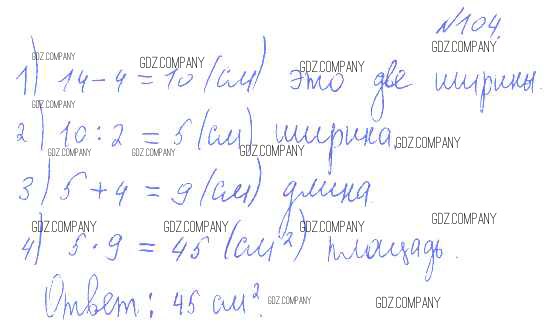 №104.
GDZ.COMPANY
GDZ.COMPANY GDZ.COMPANY GDZ.COMPANY
1) 14-4=10 (см) это две ширины.
GDZ.COMPANY
2) 10:2=5 (см) ширина.
GDZ.COMPANY
GDZ.COMPANY GDZ.COMPANY GDZ.COMPANY
3) 5+4=9 (см) длина
GDZ.COMPANY
GDZ.COMPANY GDZ.COMPANY GDZ.COMPANY
4) 5·9=45 (см²) площадь.
Ответ: 45 см².
GDZ.COMPANY GDZ.COMPANY